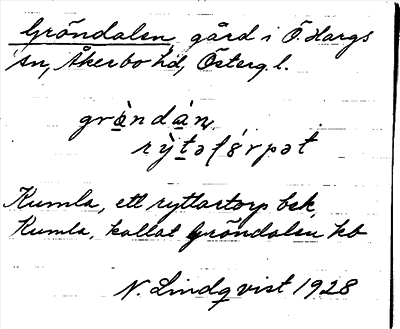 Gröndalen, gård i Ö. Hargs
sn, Åkerbo hd, Österg. l.
grø̀ndàn,
rỳtəfórpət
Kumla, ett ryttartorp bek.
Kumla, kallat Gröndalen kb
N. Lindqvist 1928